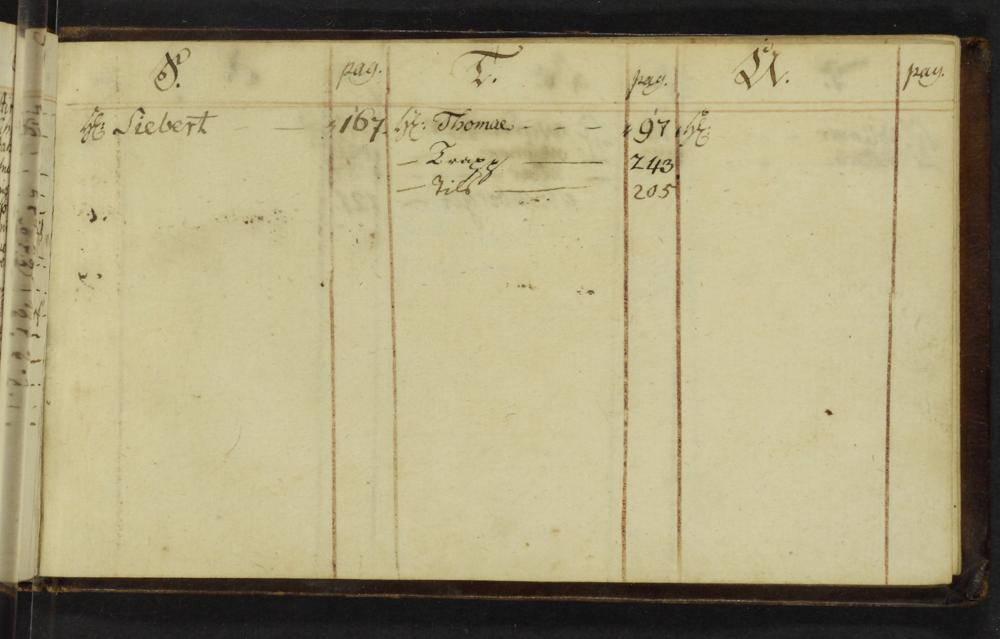 S. pag. T. pag. U. pag.
Hr: Siebert — 167. Hr: Thomae - - - 97 Hr:
— Trapp — 243
— Tils — 205